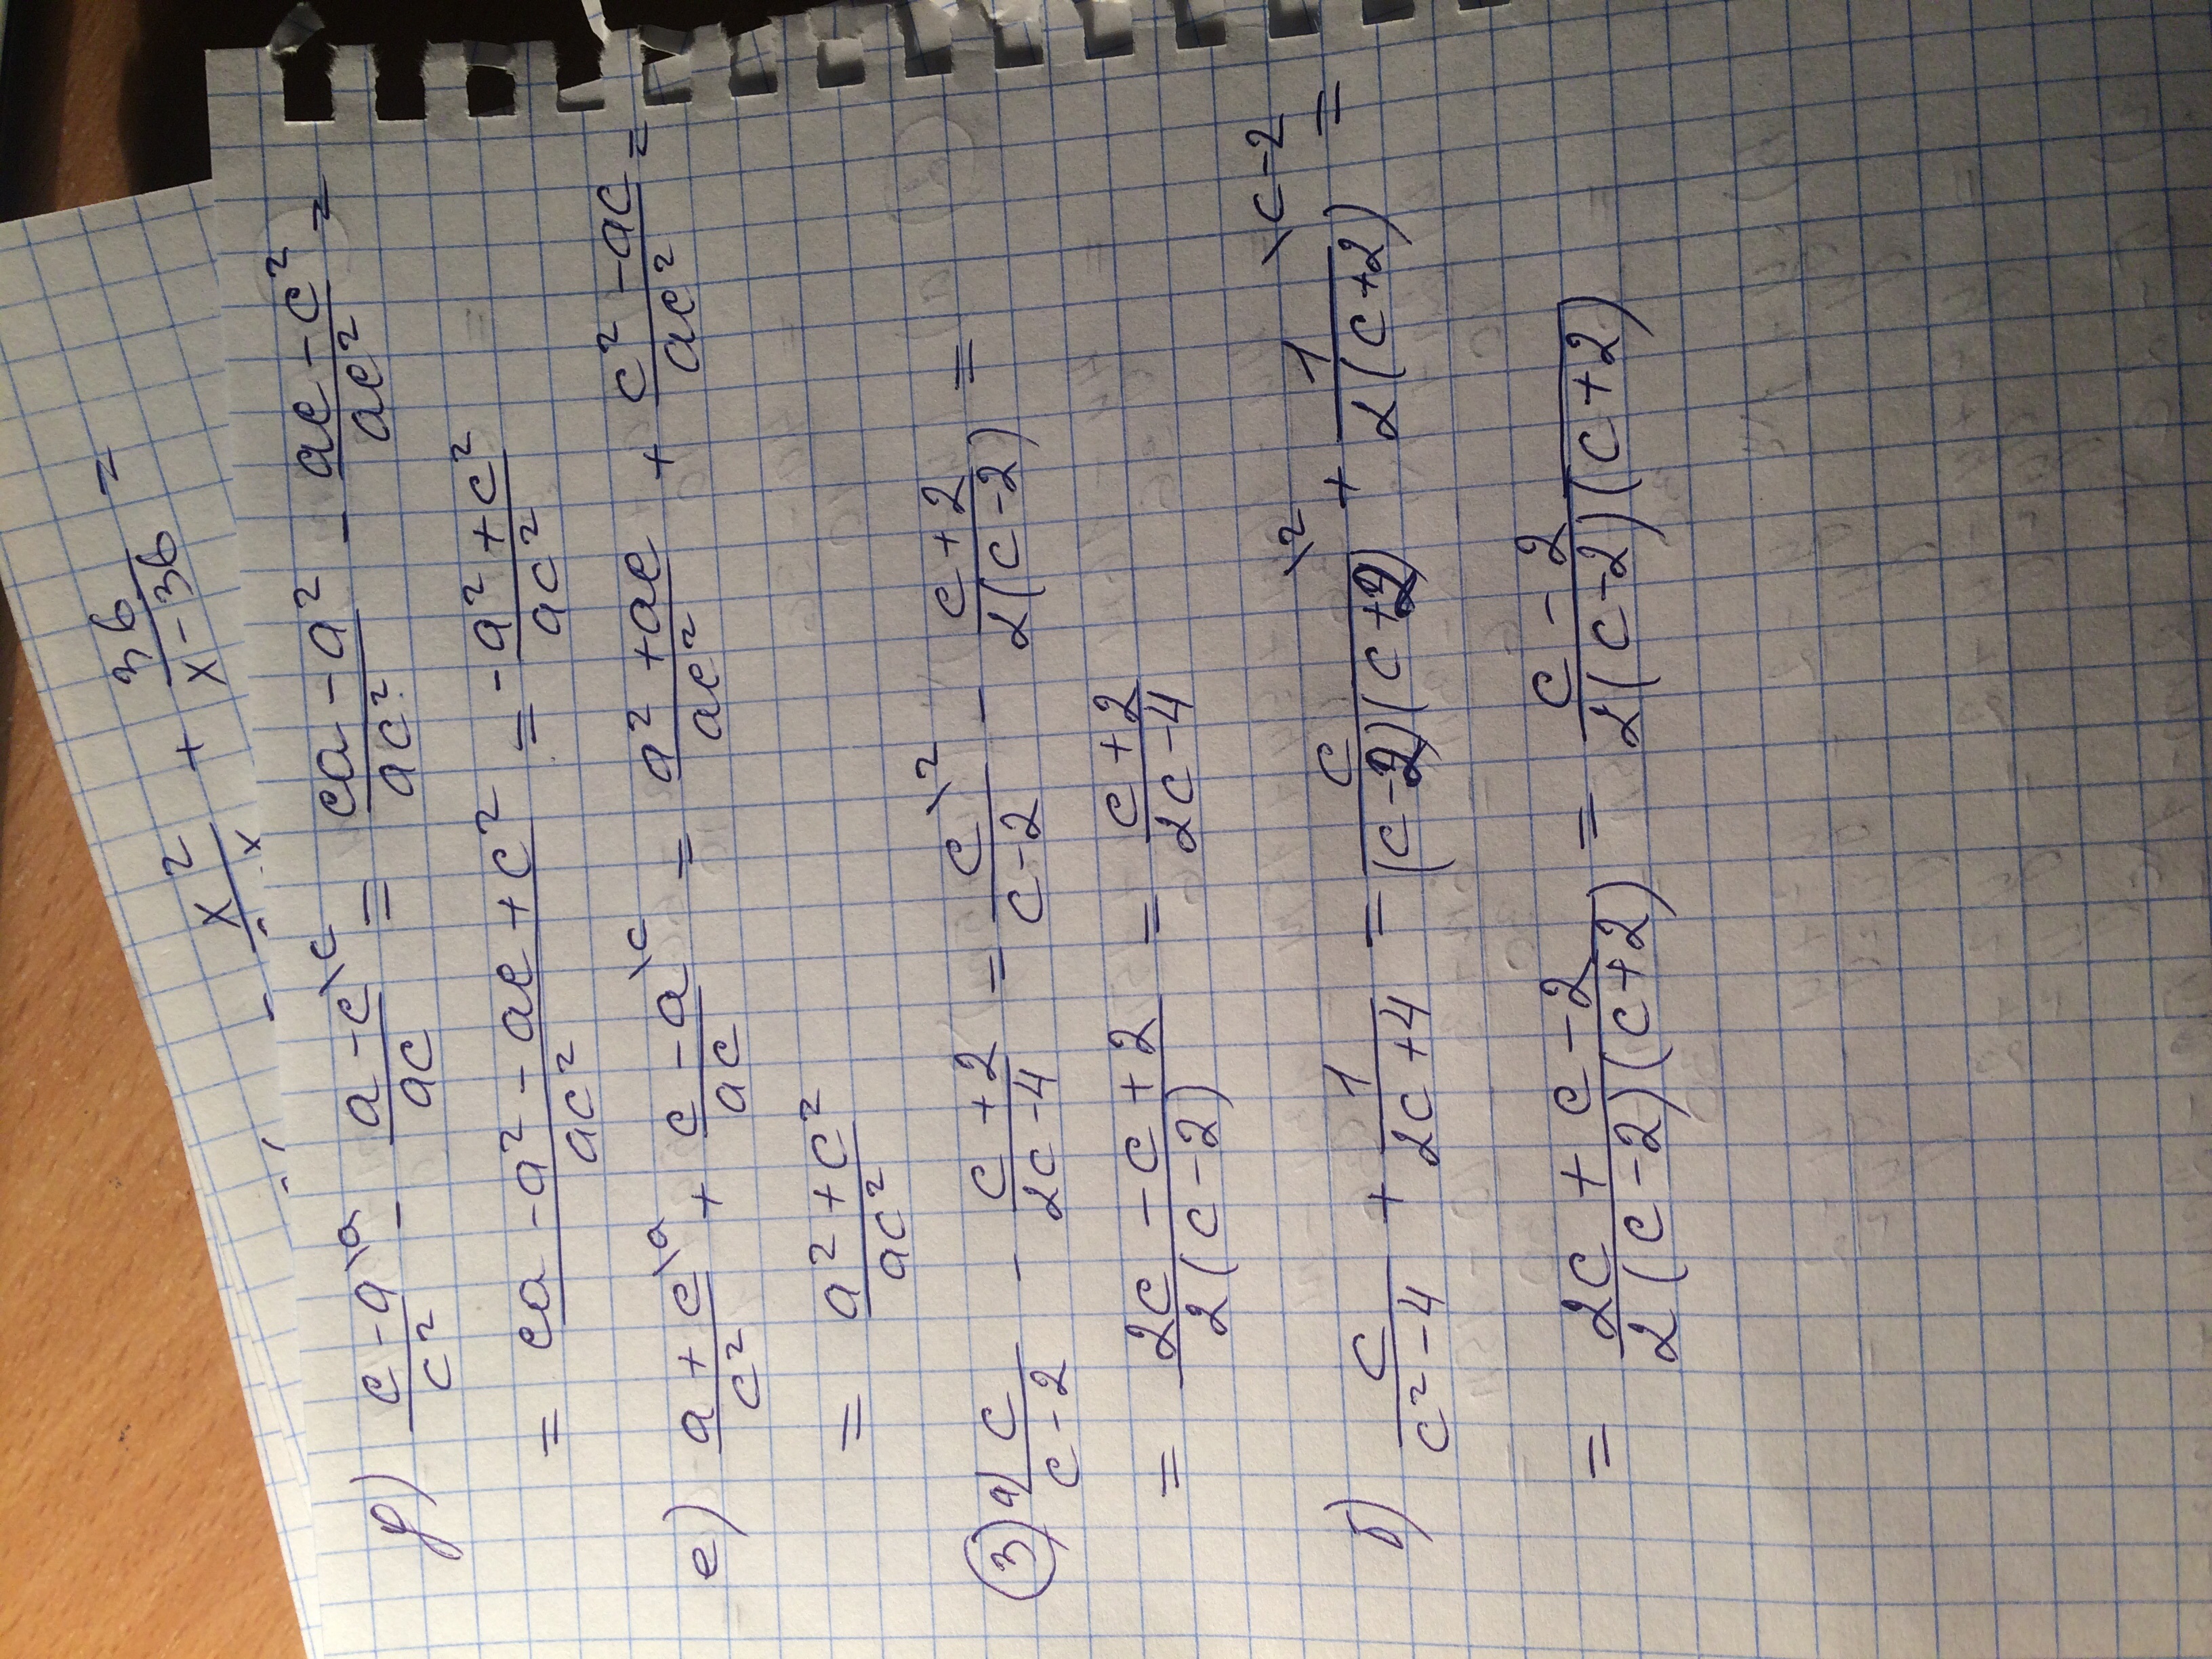 x² + 3b/(x-3b) =
д) (c-a)/c² \a - (a-c)/ac \c = (ca-a²)/ac² - (ac-c²)/ac² =
= (ca-a²-ac+c²)/ac² = (-a²+c²)/ac²
е) (a+c)/c² \a + (c-a)/ac \c = (a²+ac)/ac² + (c²-ac)/ac² =
= (a²+c²)/ac²
③ а) c/(c-2) - (c+2)/(2c-4) = c/(c-2) \2 - (c+2)/2(c-2) =
= (2c-c+2)/2(c-2) = (c+2)/(2c-4)
б) c/(c²-4) + 1/(2c+4) = c/(c-2)(c+2) \2 + 1/2(c+2) \c-2 =
= (2c+c-2)/2(c-2)(c+2) = (c-2)/2(c-2)(c+2)